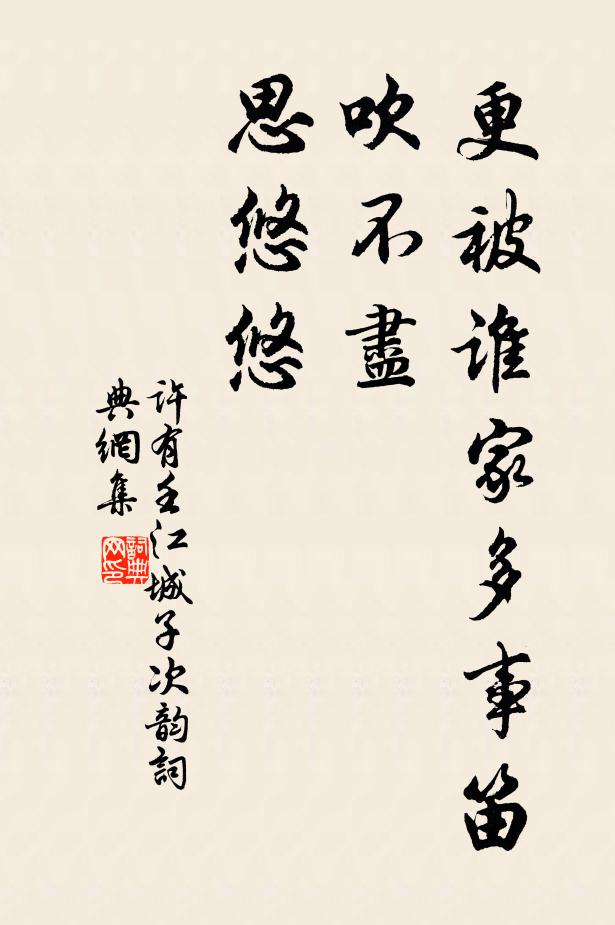 更被誰家多事笛
吹不盡
思悠悠
許有壬江城子次韵詞
典網集
詞典
网印